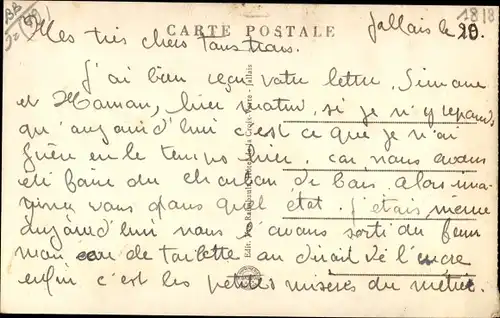 CARTE POSTALE
Jallais le 20.
1818
Mes très chers Tous trois.
J'ai bien reçu votre lettre, Simone
et Maman, hier matin, si je n'y repond
qu'aujourd'hui c'est ce que je n'ai
guère eu le temps hier, car nous avons
été faire du charbon de bois. Alors ima-
ginez vous dans quel état. J'étais même
aujourd'hui nous l'avons sorti du four
mon eau de toilette on dirait de l'encre
enfin c'est les petites misères du métier.
Edit. - Jallais